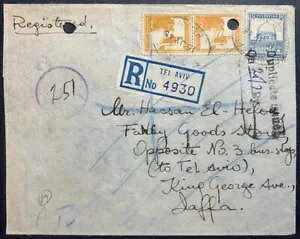 Registered,
PALESTINE
TEL AVIV
R
No 4930
251
Mr. Hassan El-Helou
Fancy Goods Store
Opposite No. 3 bus-stop
(to Tel Aviv),
King George Ave.,
Jaffa.